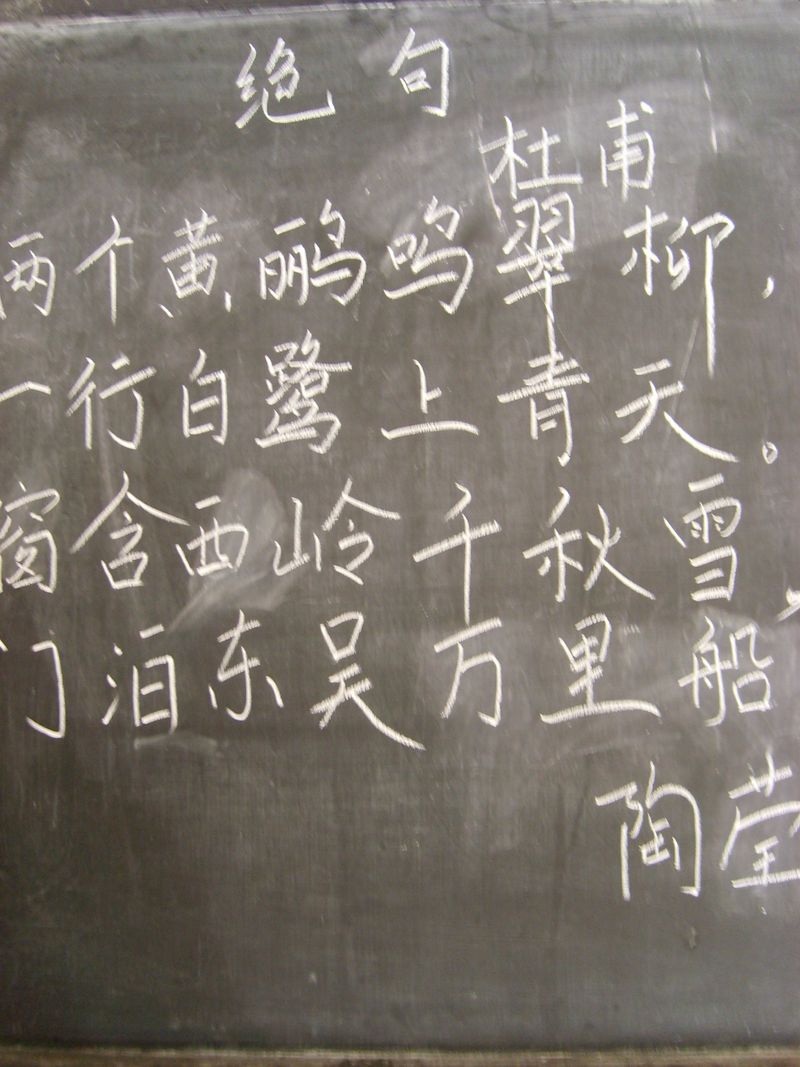 绝句
杜甫
两个黄鹂鸣翠柳，
一行白鹭上青天。
窗含西岭千秋雪，
门泊东吴万里船
陶莹